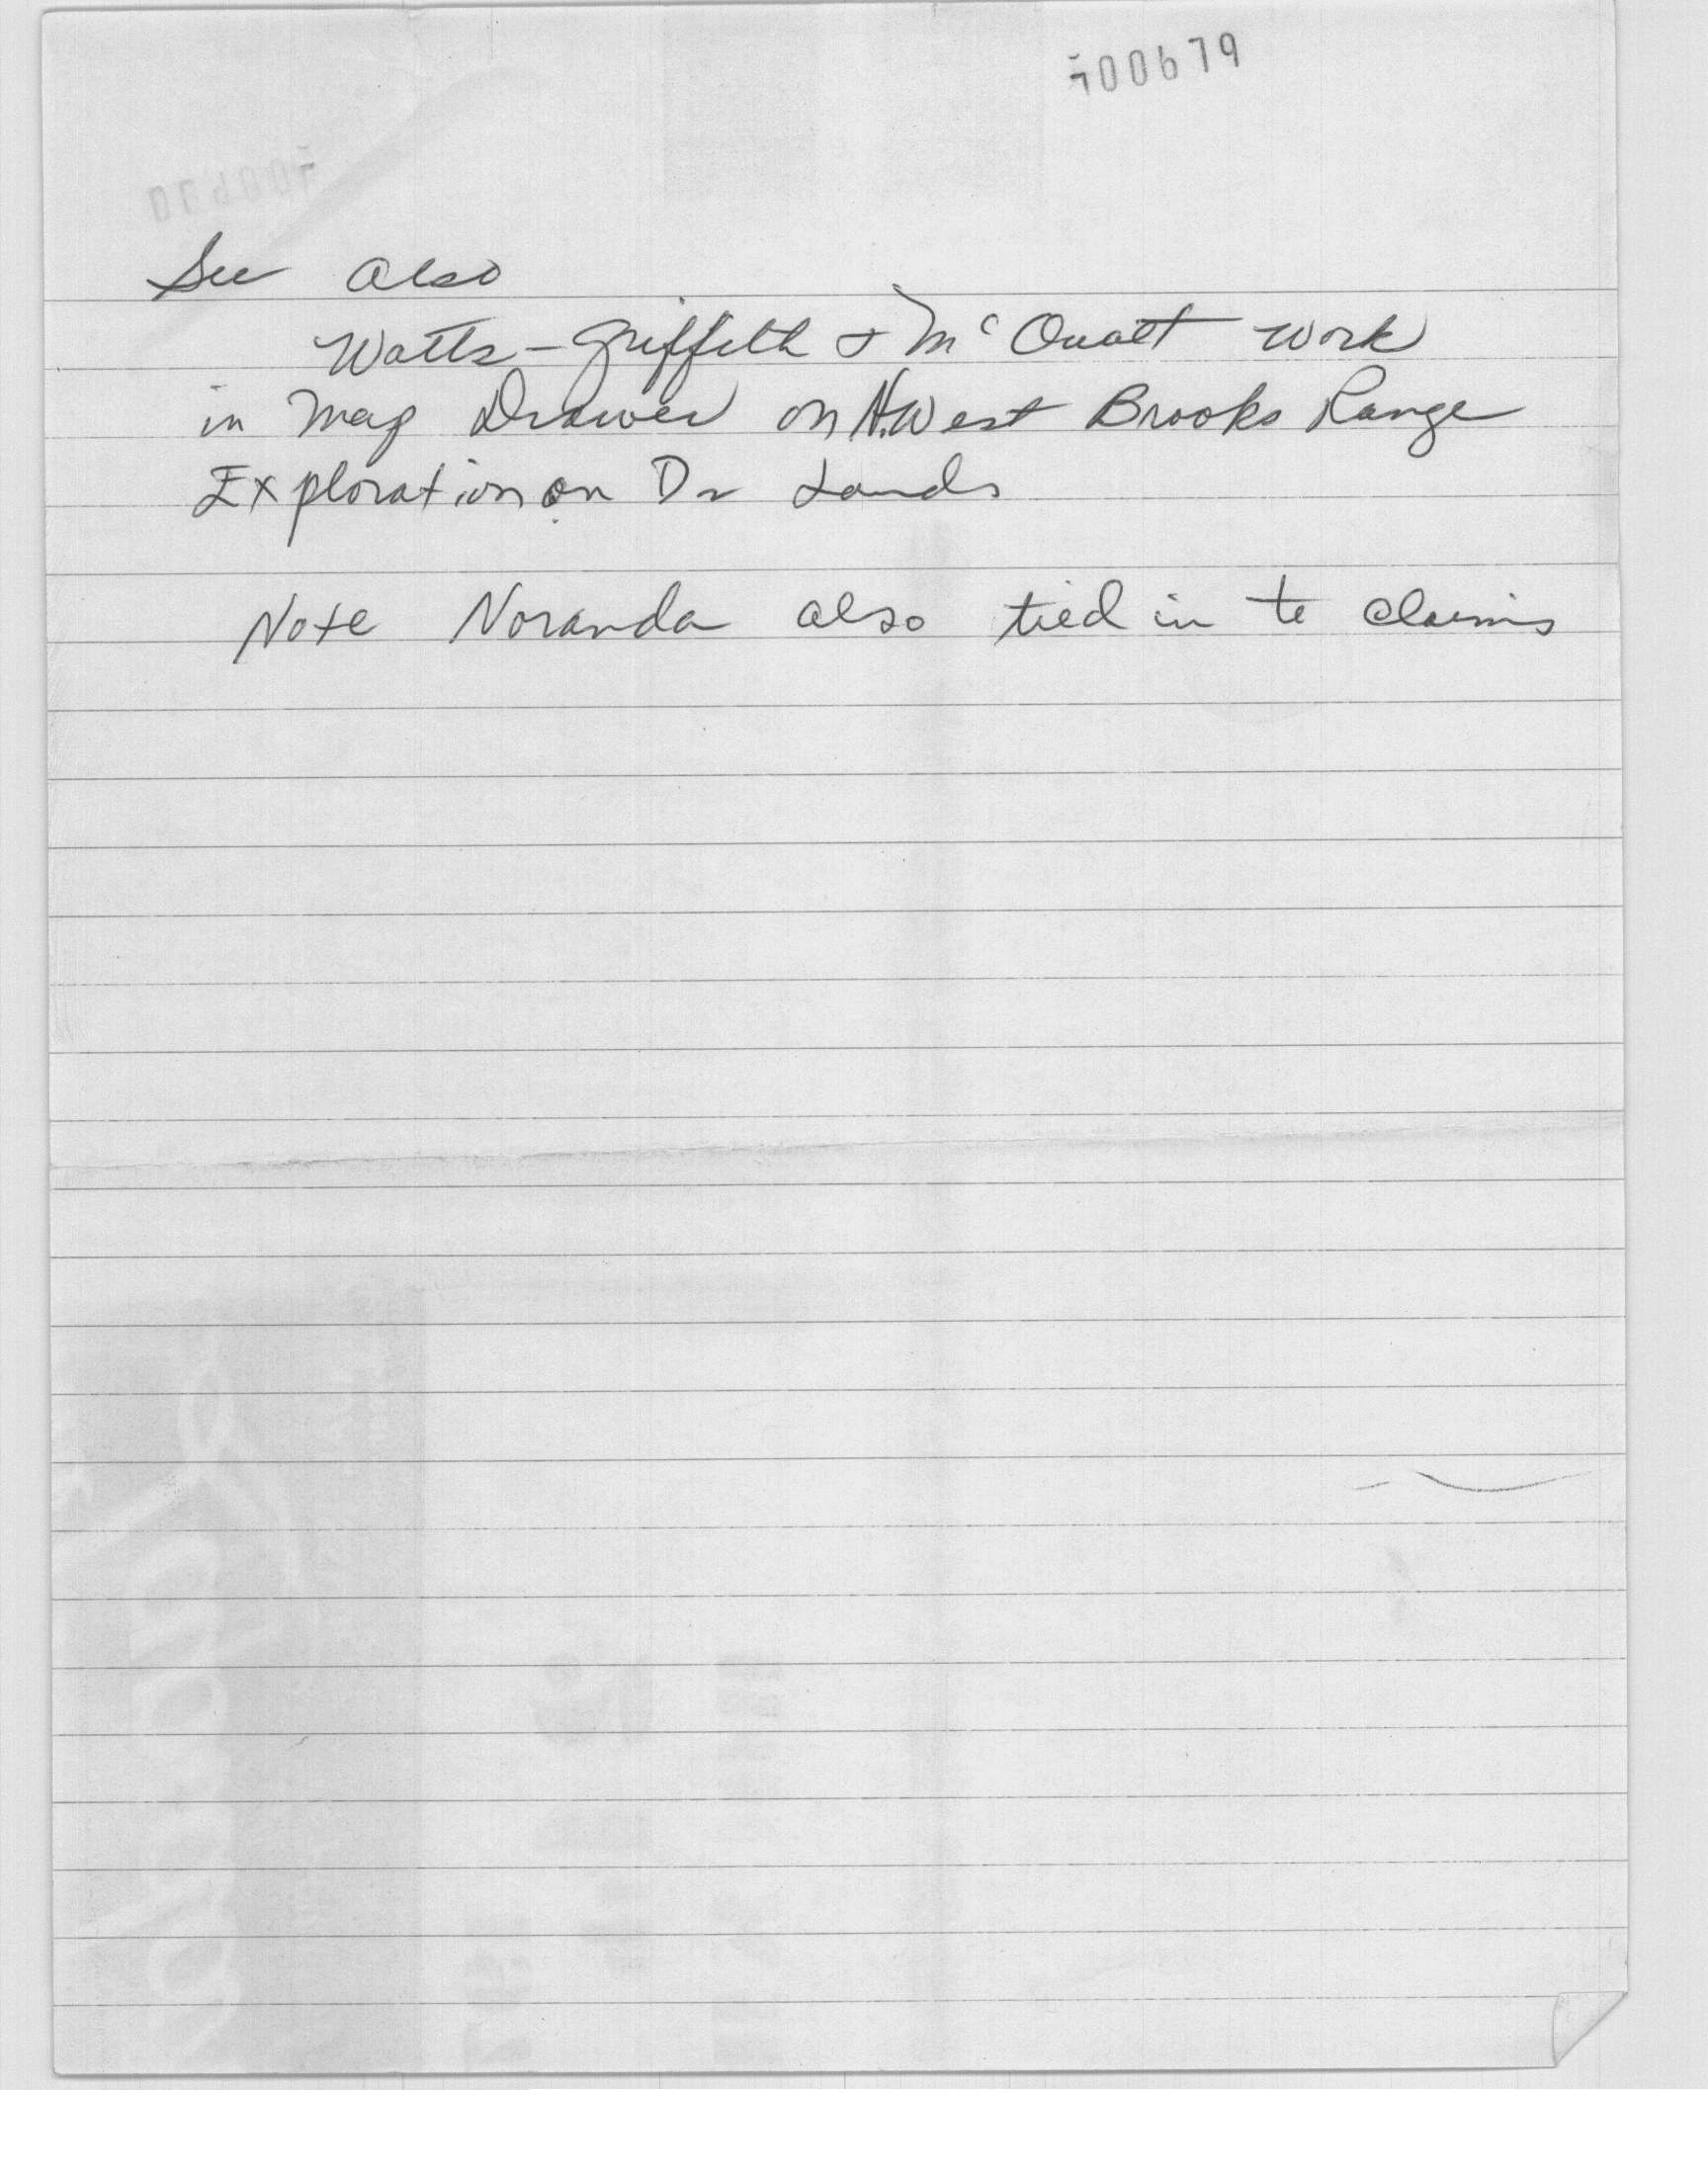 700679
See also
Watts-Griffith & McOuatt work
in Map Drawer on N.West Brooks Range
Exploration on D2 Lands
Note Noranda also tied in to claims